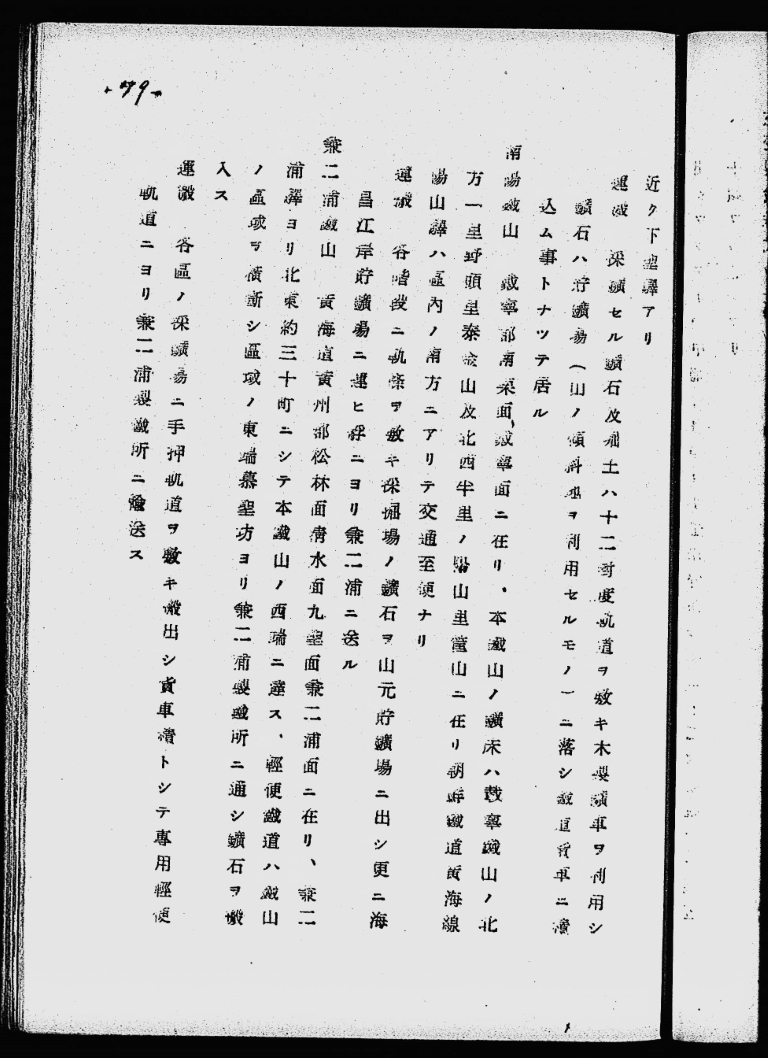 79
近ク下聖驛アリ
運搬 採鑛セル鑛石及剥土ハ十二封度軌道ヲ敷キ木製鑛車ヲ利用シ
鑛石ハ貯鑛場(山ノ傾斜地ヲ利用セルモノ)ニ落シ鐵道貨車ニ積
込ム事トナツテ居ル
南陽鐵山 載寧郡南栗面、載寧面ニ在リ、本鐵山ノ鑛床ハ載寧鐵山ノ北
方一里野頭里泰 山及北西半里ノ 山里 山ニ在リ朝鮮鐵道黄海線
陽山驛ハ區内ノ南方ニアリテ交通至便ナリ
運搬 各階段ニ軌條ヲ敷キ採掘場ノ鑛石ヲ山元貯鑛場ニ出シ更ニ海
昌江岸貯鑛場ニ運ヒ艀ニヨリ兼二浦ニ送ル
兼二浦鐵山 黄海道黄州郡松林面清水面九聖面兼二浦面ニ在リ、兼二
浦驛ヨリ北東約三十町ニシテ本鐵山ノ西端ニ達ス、輕便鐵道ハ鐵山
ノ區域ヲ横斷シ區域ノ東端慕聖坊ヨリ兼二浦製鐵所ニ通シ鑛石ヲ搬
入ス
運搬 各區ノ採鑛場ニ手押軌道ヲ敷キ搬出シ貨車積トシテ專用輕便
軌道ニヨリ兼二浦製鐵所ニ輸送ス